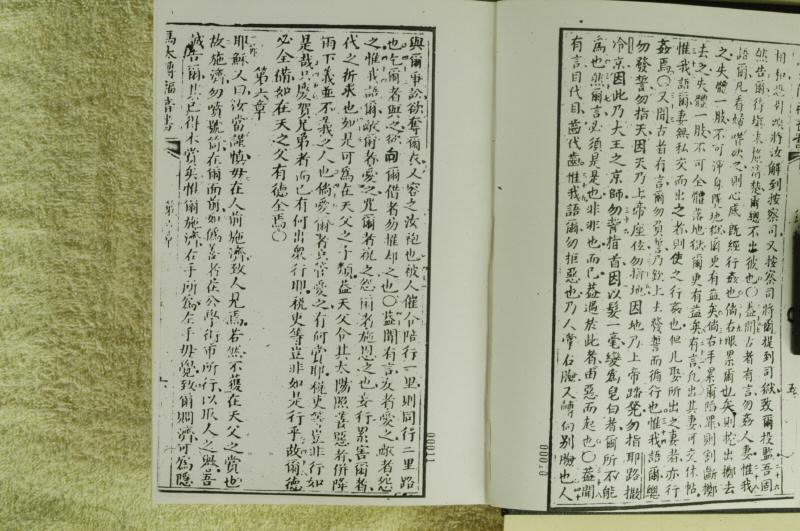 相和恐對頭將汝解到按察司又按察司將爾提到司獄致爾投監吾固
然告爾行壞未極清墊爾總不出彼也〇益聞古者有言勿姦人妻惟我
語爾凡看婦嗜欲之則心底既經行姦也倘右眼累爾也矣則挖出擲去
之失體一肢不可渾身陷地獄爾更有益矣倘右手累爾陷罪則割斷擲
去之失體一肢不可全體落地獄爾更有益矣有言凡出其妻可交休帖
惟我語爾妻無私交而出之者則使之行姦也但凡娶所出之妻者亦行
姦焉〇又聞古者有言爾勿負誓乃欽上主發誓而循行也惟我語爾總
勿發誓勿指天因天乃上帝座位勿指地因地乃上帝踏凳勿指耶路撒
冷京因此乃大王之京師勿背指首因以髮一毫變為皂白者爾所不能
為也然爾言必須是是也非非也而已益過於此者由惡而起也〇益聞
有言目代目齒代齒惟我語爾勿拒惡也乃人掌右臉又轉向別臉也人
00010
與爾爭訟欲奪爾衣又容之汝袍也被人催令陪行一里則同行二里路
也乞爾者與之欲向爾借者勿推却之也〇益聞有言友者愛之敵者怨
之惟我語爾敵爾者愛之咒爾者祝之怨爾者施恩之也妄行累害爾者
代之祈求也如是可為在天父之子類益天父令其太陽照善惡者併降
雨下義並不義之人也倘愛爾者只管愛之有何賞耶稅吏等豈非行如
是哉只慶賀兄弟者而已有何出眾行耶稅吏等豈非如是行乎故爾德
必全備如在天之父有德全焉〇
第六章
耶穌又曰汝當謹慎毋在人前施濟致人見焉若然不獲在天父之賞也
故施濟勿噴號筒在爾面前如偽善者在公學街市所行以取人之與吾
誠告爾其已得本賞矣惟爾施濟右手所為左手毋覺致爾賙濟可為隱
馬太傳福音書
第六章
00011